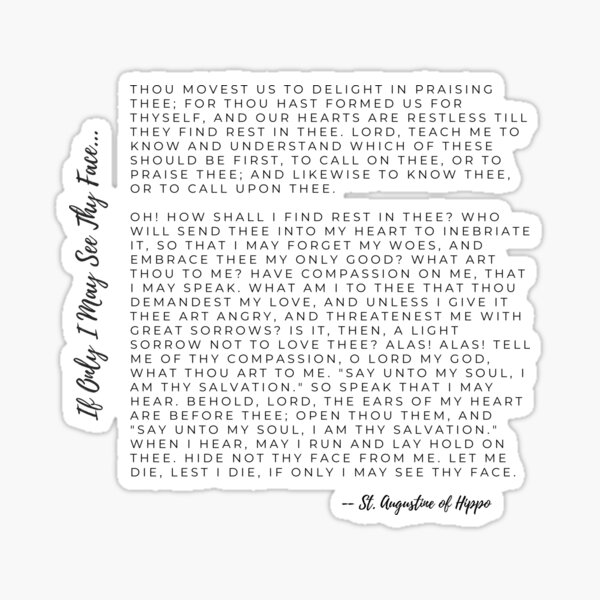 If Only I May See Thy Face...
THOU MOVEST US TO DELIGHT IN PRAISING
THEE; FOR THOU HAST FORMED US FOR
THYSELF, AND OUR HEARTS ARE RESTLESS TILL
THEY FIND REST IN THEE. LORD, TEACH ME TO
KNOW AND UNDERSTAND WHICH OF THESE
SHOULD BE FIRST, TO CALL ON THEE, OR TO
PRAISE THEE; AND LIKEWISE TO KNOW THEE,
OR TO CALL UPON THEE.
OH! HOW SHALL I FIND REST IN THEE? WHO
WILL SEND THEE INTO MY HEART TO INEBRIATE
IT, SO THAT I MAY FORGET MY WOES, AND
EMBRACE THEE MY ONLY GOOD? WHAT ART
THOU TO ME? HAVE COMPASSION ON ME, THAT
I MAY SPEAK. WHAT AM I TO THEE THAT THOU
DEMANDEST MY LOVE, AND UNLESS I GIVE IT
THEE ART ANGRY, AND THREATENEST ME WITH
GREAT SORROWS? IS IT, THEN, A LIGHT
SORROW NOT TO LOVE THEE? ALAS! ALAS! TELL
ME OF THY COMPASSION, O LORD MY GOD,
WHAT THOU ART TO ME. "SAY UNTO MY SOUL, I
AM THY SALVATION." SO SPEAK THAT I MAY
HEAR. BEHOLD, LORD, THE EARS OF MY HEART
ARE BEFORE THEE; OPEN THOU THEM, AND
"SAY UNTO MY SOUL, I AM THY SALVATION."
WHEN I HEAR, MAY I RUN AND LAY HOLD ON
THEE. HIDE NOT THY FACE FROM ME. LET ME
DIE, LEST I DIE, IF ONLY I MAY SEE THY FACE.
-- St. Augustine of Hippo